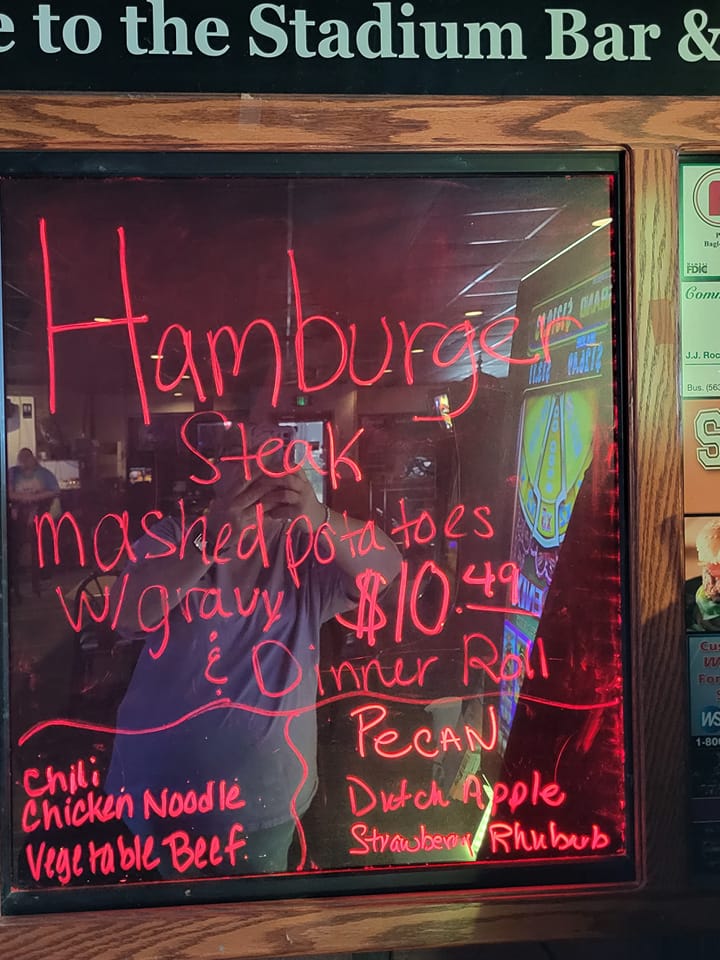 e to the Stadium Bar &
Hamburger
Steak
mashed potatoes
w/gravy $10.49
& Dinner Roll
Chili
Chicken Noodle
Vegetable Beef
Pecan
Dutch Apple
Strawberry Rhubarb
FDIC
Com
J.J. Roc
Bus. (563
S
Cus
W
For
WS
1-80